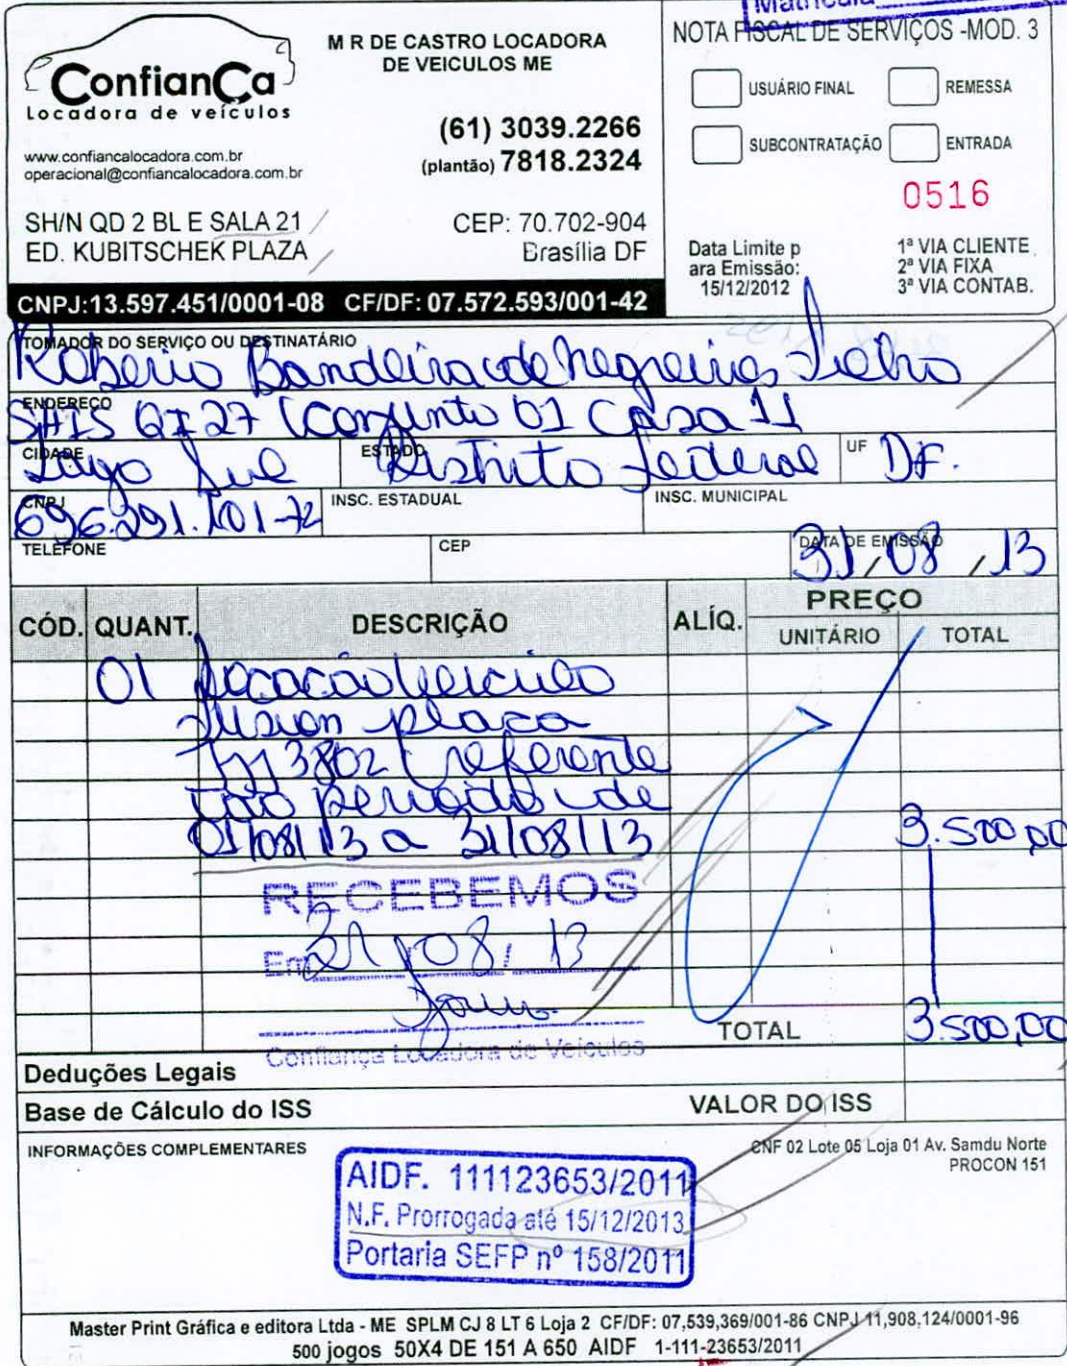 Matrícula
ConfianÇa
Locadora de veículos
www.confiancalocadora.com.br
operacional@confiancalocadora.com.br
M R DE CASTRO LOCADORA
DE VEICULOS ME
(61) 3039.2266
(plantão) 7818.2324
SH/N QD 2 BL E SALA 21
ED. KUBITSCHEK PLAZA
CEP: 70.702-904
Brasília DF
CNPJ:13.597.451/0001-08 CF/DF: 07.572.593/001-42
NOTA FISCAL DE SERVIÇOS -MOD. 3
USUÁRIO FINAL
REMESSA
SUBCONTRATAÇÃO
ENTRADA
0516
Data Limite p
ara Emissão:
15/12/2012
1ª VIA CLIENTE
2ª VIA FIXA
3ª VIA CONTAB.
TOMADOR DO SERVIÇO OU DESTINATÁRIO
Roberio Bandeira de Negreiros Filho
ENDEREÇO
SHIS QI 27 Conjunto 01 Casa 11
CIDADE
Lago Sul
ESTADO
Distrito Federal
UF DF.
CNPJ
696.291.101-72
INSC. ESTADUAL
INSC. MUNICIPAL
TELEFONE
CEP
DATA DE EMISSÃO
31/08/13
CÓD. QUANT. DESCRIÇÃO ALÍQ. PREÇO
UNITÁRIO TOTAL
01 Locação veiculo
Fusion placa
3802 referente
ao periodo de
01/08/13 a 31/08/13 3.500,00
RECEBEMOS
Em 31/08/13
Confiança Locadora de Veículos
TOTAL 3.500,00
Deduções Legais
Base de Cálculo do ISS VALOR DO ISS
INFORMAÇÕES COMPLEMENTARES
CNF 02 Lote 05 Loja 01 Av. Samdu Norte
PROCON 151
AIDF. 111123653/2011
N.F. Prorrogada até 15/12/2013
Portaria SEFP nº 158/2011
Master Print Gráfica e editora Ltda - ME SPLM CJ 8 LT 6 Loja 2 CF/DF: 07,539,369/001-86 CNPJ 11,908,124/0001-96
500 jogos 50X4 DE 151 A 650 AIDF 1-111-23653/2011